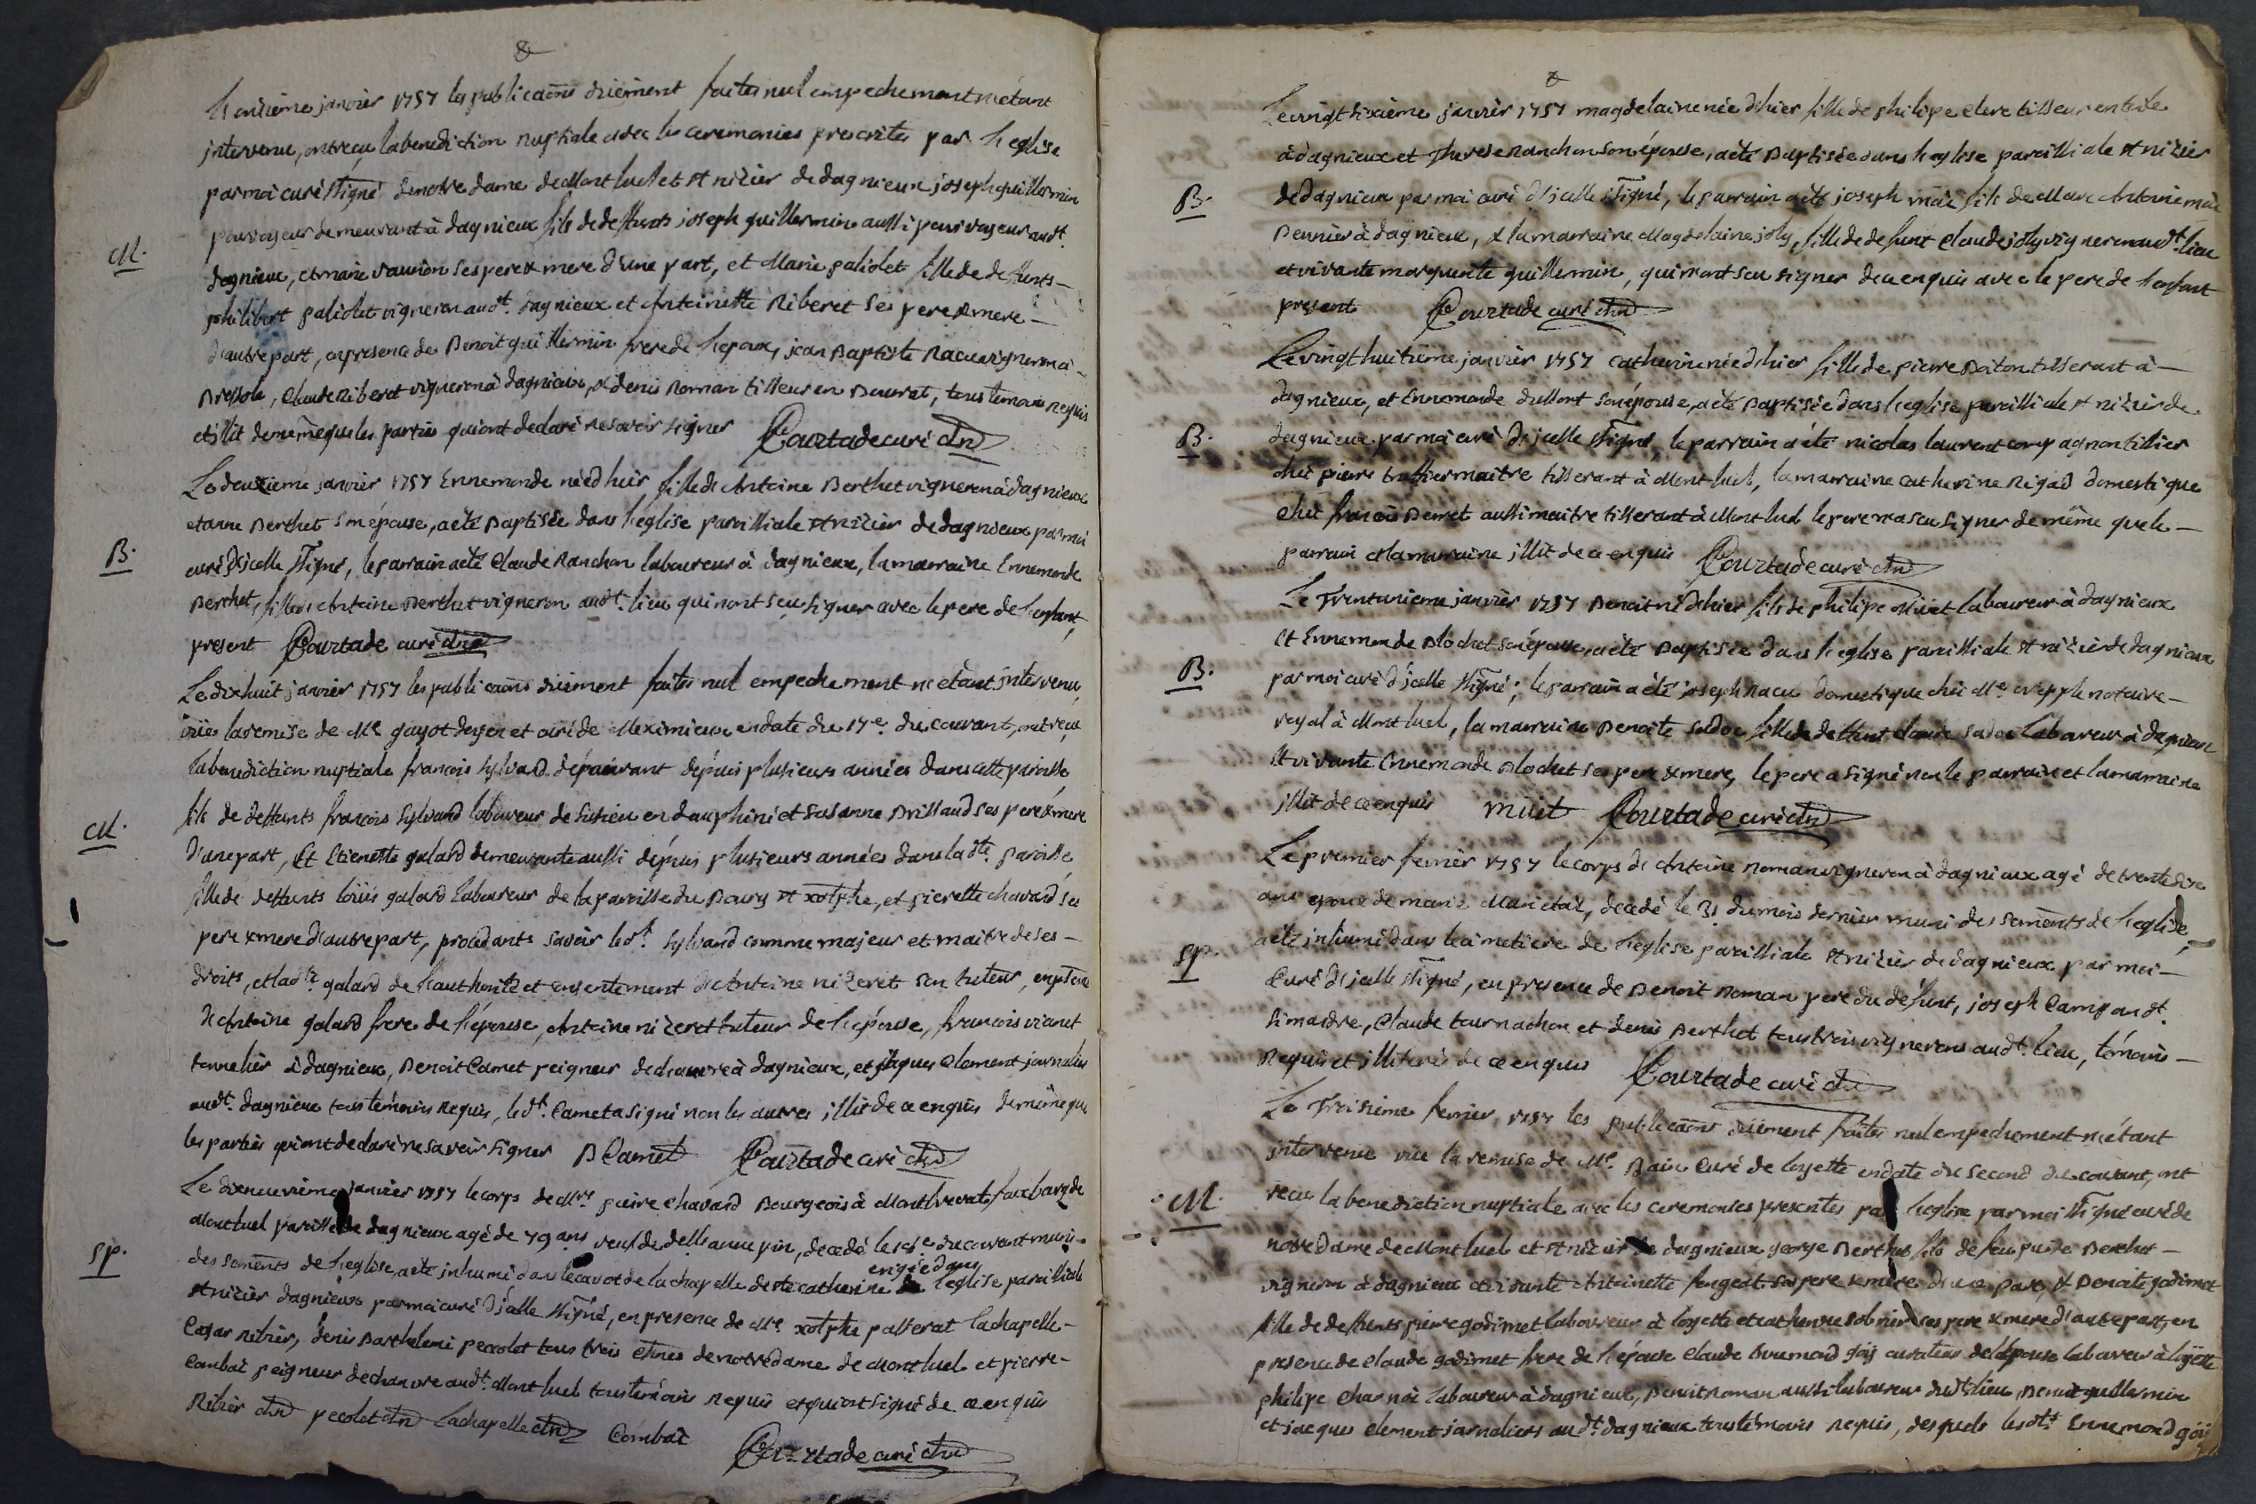 &
L'onzième janvier 1757 les publicaõns düement faites nul empechement n'étant
intervenu, ont reçu la benediction nuptiale avec les ceremonies prescrites par l'eglise
par moi curé ssigné de notre dame de Montluel et st nizier de dagnieux joseph guillermin
pourvoyeur demeurant à dagnieux fils de deffunts joseph guillermin aussi pourvoyeur audt.
M.
dagnieux, et marie vaurion ses pere & mere d'une part, et Marie paliolet fille de defunts
philibert paliolet vigneron audt. dagnieux et Antoinette Riberet ses pere & mere
d'autre part, en presence de Benoit guillermin frere de l'epoux, jean Baptiste Racu vigneron à
Bressole, Claude Riberet vigneron à dagnieux, & denis Roman tilleur en Bourat, tous temoins requis
et illit de même que les parties qui ont declaré ne savoir signer Courtade curé
Le deuzieme janvier 1757 Ennemonde née d'hier fille de Antoine Berthet vigneron à dagnieux
et anne Berthet son épouse, a été Baptisée dans l'église paroissiale st nizier de dagnieux par moi
B.
curé d'jcelle ssigné, le parrain a été Claude Ranchon laboureur à dagnieux, la marraine Ennemonde
Berthet, fille de Antoine Berthet vigneron audt. lieu qui n'ont seu signer avec le pere de l'enfant,
present Courtade curé
Le dixhuit janvier 1757 les publicaõns düement faites nul empechement n'étant jntervenu,
vüe la remise de Me guyot doyen et curé de Meximieux en date du 17e. du courant, ont reçu
la benediction nuptiale francois sylvard demeurant dépuis plusieurs années dans cette paroisse
M.
fils de deffunts françois sylvard laboureur de Susieu en dauphiné et Susanne Brissaud ses pere & mere
D'une part, Et Etienette galard demeurante aussi dépuis plusieurs années dans ladte. paroisse,
fille de deffunts loüis galard laboureur de la paroisse du Bourg st xotphe, et pierette chavard ses
pere & mere d'autre part, procédants savoir ledt. sylvard comme majeur et maitre de ses
droits, et ladte. galard de l'authorité et consentement de Antoine nizeret son tuteur, en pñce
de Antoine galard frere de l'épouse, Antoine nizeret tuteur de l'épouse, francois vianet
tonnelier à dagnieux, Benoit Camet peigneur de chanvre à dagnieux, et jaques Clement journalier
audt. dagnieux tous témoins requis, ledt. Camet a signé non les autres illit de ce enquis de même que
les parties qui ont declaré ne savoir signer B Camet Courtade curé
Le dixneuvième janvier 1757 le corps de Mre pierre Chavard Bourgeois à Montbrevet, fauxbourg de
Montluel paroisse de dagnieux agé de 79 ans veuf de delle anne pin, decedé le 18e. du courant muni
sp.
des samẽnts de l'eglise, a été inhumé dans le cavot de la chapelle de ste catherine engée dans l'eglise paroissiale
st nizier dagnieux par moi curé d'jcelle ssigné, en presence de Me xotphe passerat lachapelle
Cesar ribier, denis Barthelemi pecolet tous trois chnes de notredame de Montluel et pierre
Combat peigneur de chanvre audt. Montluel tous temoins requis et qui ont signé de ce enquis
Ribier chñe pecolet chñe Lachapelle chñe Combat Courtade curé
&
Le vingt sixième janvier 1757 magdelaine née d'hier fille de philipe Clere tilleur en toile
à dagnieux et Therese Ranchon son épouse, a été Baptisée dans l'eglise paroissiale st nizier
B.
de dagnieux par moi curé d'jcelle ssigné, le parrain a été joseph fils de Marc Antoine
à dagnieux, & la marraine Magdelaine joly, fille de defunt Claude joly vigneron audt. lieu
et vivante marguerite guillermin, qui n'ont seu signer de ce enquis avec le pere de l'enfant
present Courtade curé
Le vingt huitième janvier 1757 catherine née d'hier fille de pierre Boiton tisserant à
dagnieux, et Ennemonde dumont son épouse, a été Baptisée dans l'eglise paroissiale st nizier de
B.
dagnieux par moi curé d'jcelle ssigné, le parrain a été nicolas laurent compagnon tissier
chés pierre maitre tisserant à Montluel, la marraine catherine Rigad domestique
chés françois Berret aussi maitre tisserant à Montluel le pere n'a seu signer de même que le
parrain et la marraine illit de ce enquis Courtade curé
Le Trentunieme janvier 1757 Benoit né d'hier fils de philipe Müet laboureur à dagnieux
et Ennemonde Blochet son épouse, a été Baptisé dans l'eglise paroissiale st nizier de dagnieux
B.
par moi curé d'jcelle ssigné; le parrain a été joseph Racu domestique chés Me. notaire
royal à Montluel, la marraine Benoite Sadoc fille de deffunt Claude Sadoc laboureur à dagnieux
et vivante Ennemonde Blochet ses pere & mere, le pere a signé non le parrain et la marraine
illit de ce enquis müet Courtade curé
Le premier fevrier 1757 le corps de Antoine Roman vigneron à dagnieux agé de trente deux
ans epoux de marie decedé le 31 du mois dernier muni des samẽnts de l'eglise,
sp.
a été inhumé dans le cimetiere de l'eglise paroissiale st nizier de dagnieux par moi
Curé d'jcelle ssigné, en presence de Benoit Roman pere du defunt, joseph Camp
Simandre, Claude tournachon et denis Berthet tous trois vignerons audt. lieu, témoins
Requis et illiterés de ce enquis Courtade curé
Le Troisieme fevrier 1757 les publicaõns düement faites nul empechement n'étant
jntervenu vüe la remise de Me. Bain Curé de loyette en date du second du courant, ont
M.
reçu la benediction nuptiale avec les ceremonies prescrites par l'eglise par moi ssigné curé de
notredame de Montluel et st nizier de dagnieux george Berthet fils de feu pierre Berthet
vigneron à dagnieux et vivante Antoinette fougeat ses pere & mere d'une part, & Benoite godimet
fille de deffunts pierre godimet laboureur à loyette et catherine ses pere & mere d'autre part, en
presence de Claude godimet frere de l'épouse Claude Ennemond göy curateur de l'épouse laboureur à loyette
philipe laboureur à dagnieux, Benoit Roman aussi laboureur dudt. lieu, Benoit guillermin
et jacques Clement journaliers audt. dagnieux tous témoins requis, desquels lesdts. Ennemond göy